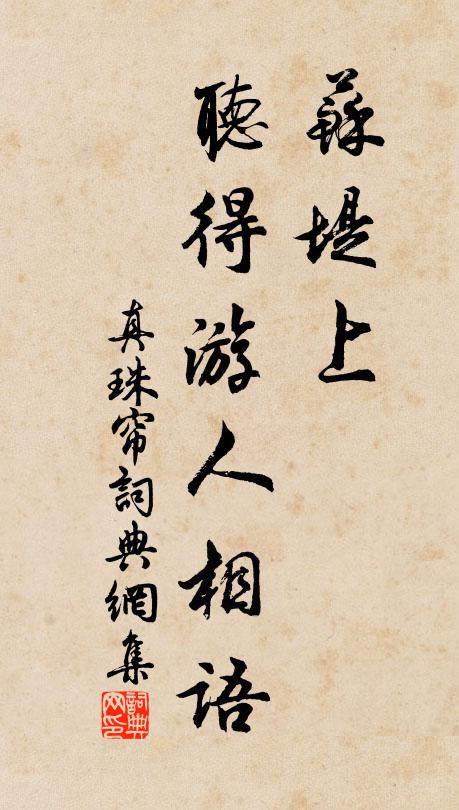 蘇堤上
聽得游人相語
真珠帘詞典網集
詞典
网印